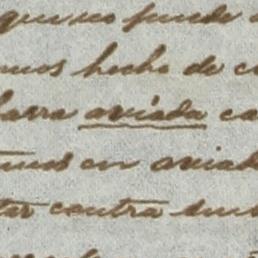 que no puede
mos hecho de c
barra aviada ca
mos en aviad
tar contra sus